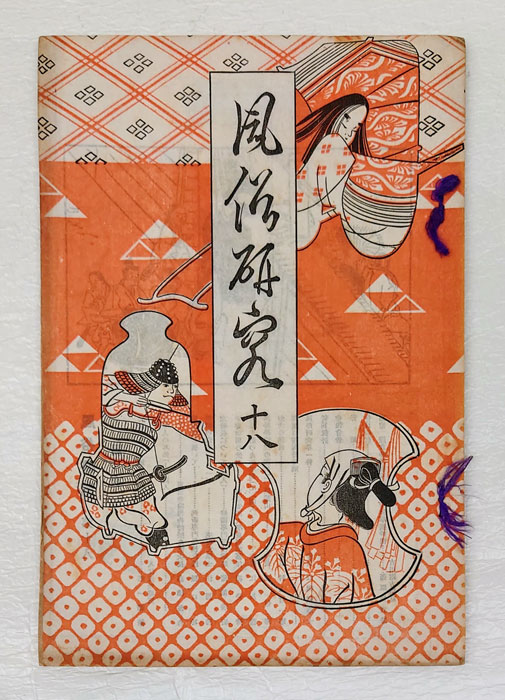 風俗研究十八